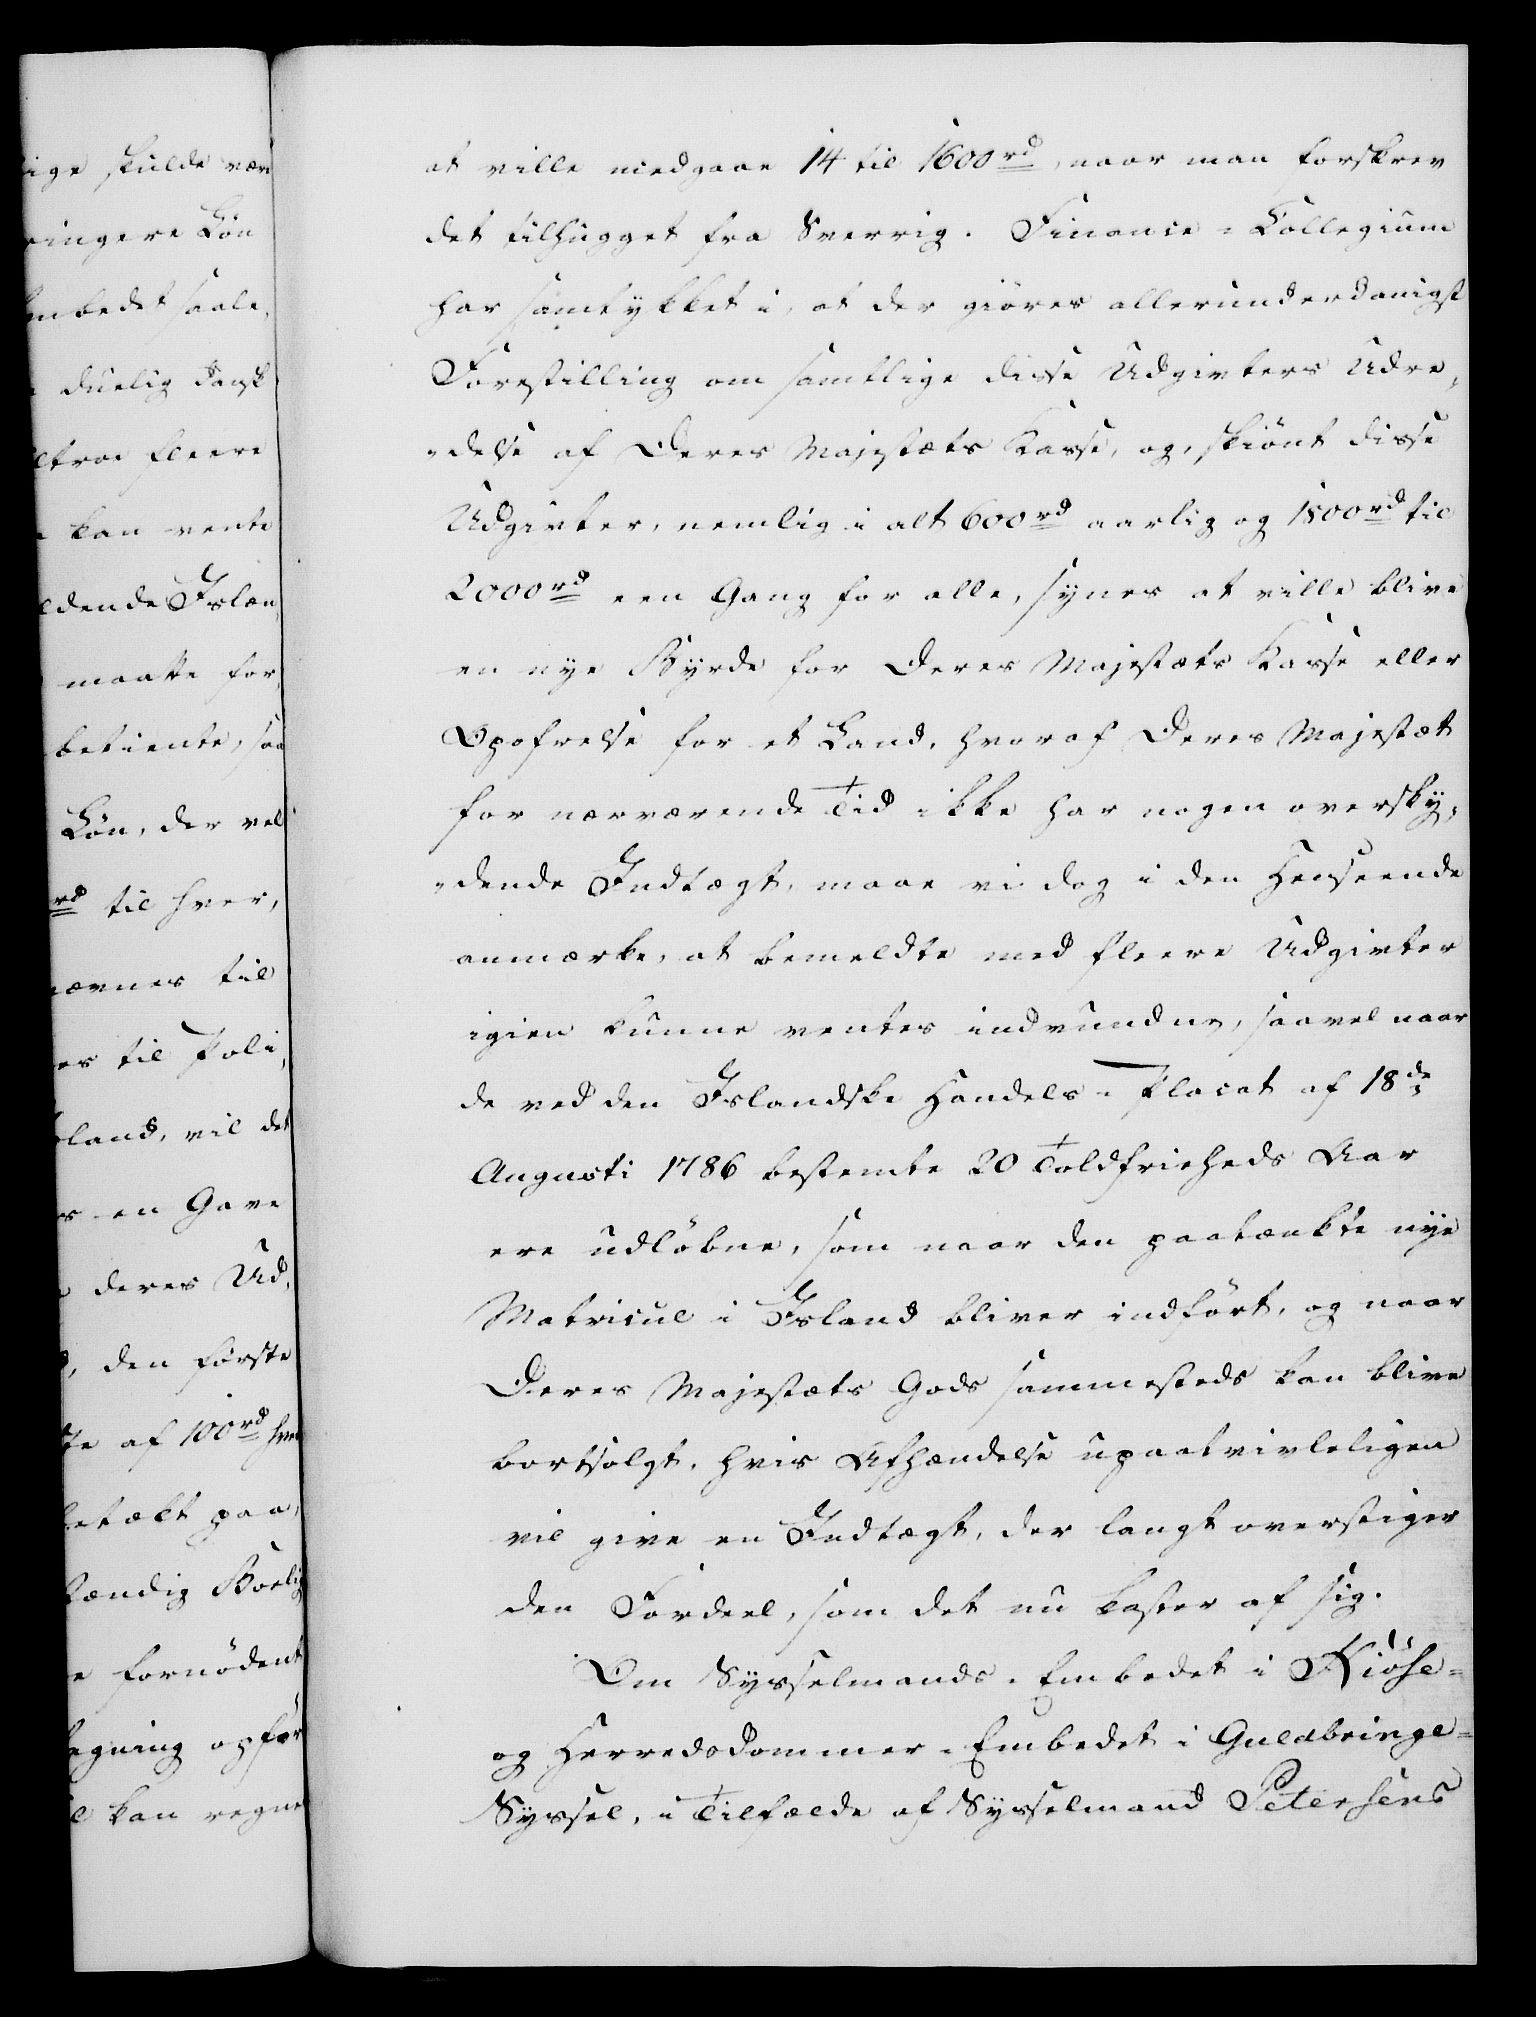 ige skulde vær
ringere Løn
mbedet saale,
duelig dansk
fleere
kan vente
dende Islæn,
maatte for,
betiente, saa
Løn, der vel
rd til hver,
nævnes til
es til Poli,
land, vil det
en Gave
deres Ud,
den første
te af 100 rd hver
paa,
stændig Boelig
fornødent
egning opfør
kan regne
at ville medgaae 14 til 1600 rd, naar man forskrev
det tilhugget fra Sverrig. Finance-Collegium
har samtykket i, at der giöres allerunderdanigst
Forestilling om samtlige disse Udgivters Udre,
„delse af Deres Majestæts Kasse, og, skiönt disse
Udgivter, nemlig i alt 600 rd aarlig og 1800 rd til
2000 rd een Gang for alle, synes at ville blive
en nye Byrde for Deres Majestæts Kasse eller
Opofrelse for et Land, hvoraf Deres Majestæt
for nærværende Tid ikke har nogen oversky,
„dende Indtægt, maae vi dog i den Henseende
anmærke, at bemeldte med fleere Udgivter
igien kunne ventes indvundne, saavel naar
de ved den Islandske Handels-Placat af 18de
Augusti 1786 bestemte 20 Toldfrieheds Aar
ere udløbne, som naar den paatænkte nye
Matricul i Island bliver indført, og naar
Deres Majestæts Gods sammesteds kan blive
bortsolgt, hvis Afhændelse upaatvivleligen
vil give en Indtægt, der langt overstiger
den Fordeel, som det nu kaster af sig.
Om Sysselmands-Embedet i Kiöse-
og Herredsdommer-Embedet i Guldbringe-
Syssel, i Tilfælde af Sysselmand Petersens